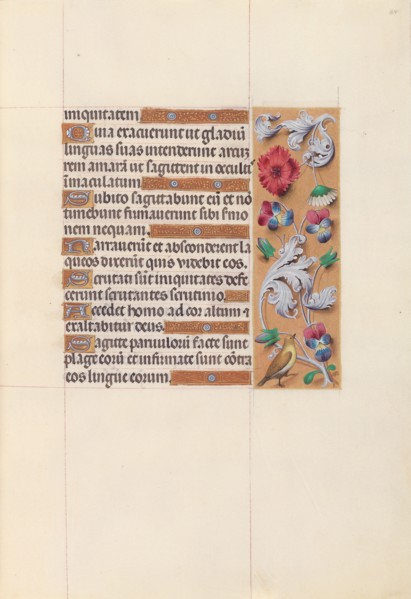 iniquitatem
Quia exacuerunt ut gladiū
linguas suas intenderunt arcū
rem amarā ut sagittent in occulti
īmaculatum
Subito sagittabunt eū et nō
timebunt firmaverunt sibi sermo
nem nequam.
Narraverūt et absconderent la
queos dixerūt quis videbit eos.
Scrutati sūt iniquitates defe
cerunt scrutantes scrutinio.
Accedet homo ad cor altum et
exaltabitur deus.
Sagitte parvulorū facte sunt
plage eorū et infirmate sunt cōtra
eos lingue eorum.